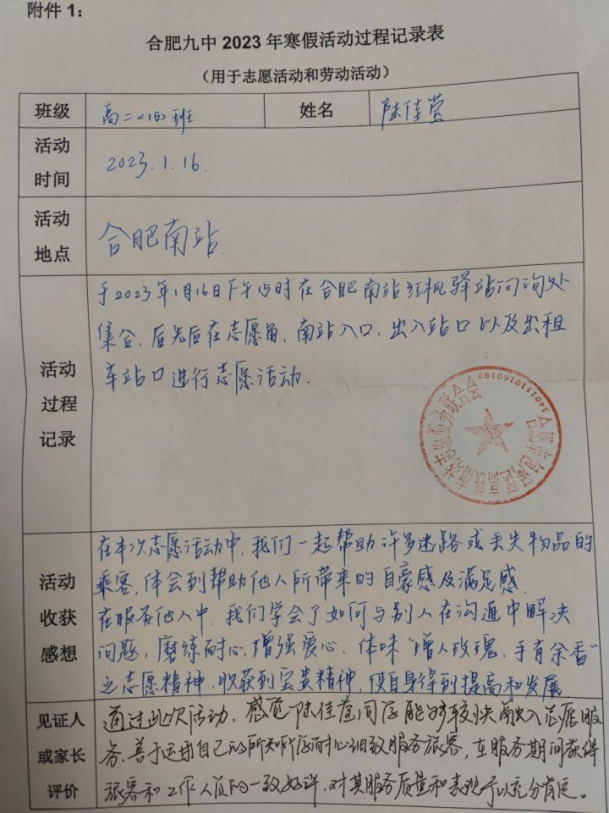 附件1：
合肥九中2023年寒假活动过程记录表
（用于志愿活动和劳动活动）
班级 高二<16>班 姓名 陆佳莹
活动时间 2023.1.16.
活动地点 合肥南站
活动过程记录
于2023年1月16日下午15时在合肥南站红帆驿站问询处
集合，后先后在志愿角，南站入口，出入站口以及出租
车站口进行志愿活动.
活动收获感想
在本次志愿活动中，我们一起帮助许多迷路或丢失物品的
乘客，体会到帮助他人所带来的自豪感及满足感.
在服务他人中，我们学会了如何与别人在沟通中解决
问题，磨练耐心，增强爱心，体味“赠人玫瑰，手有余香”
之志愿精神，收获到宝贵精神，使自身得到提高和发展
见证人或家长评价
通过此次活动，感觉陆佳莹同学能够较快融入志愿服
务，善于运用自己的所知所学耐心细致服务旅客，在服务期间获得
旅客和工作人员的一致好评，对其服务质量和表现予以充分肯定。